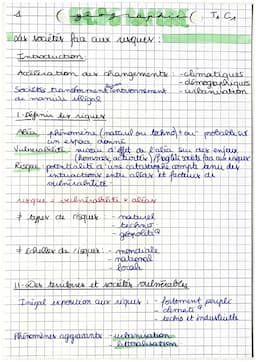 géographie T.C1
Les sociétés face aux risques :
Introduction
Accélération des changements - climatiques
- démographiques
- urbanisation
Sociétés transforment l'environnement
de manière illégal
I - Définir les risques
Aléa : phénomène (naturel ou techno) + ou - probable sur
un espace donné
Vulnérabilité : niveau d'effet de l'aléa sur des enjeux
(hommes, activités) / fragilité sociétés face aux risques
Risque : potentialité d'une catastrophe compte tenu des
interactions entre aléas et facteurs de
vulnérabilité
risque = vulnérabilité × aléas
≠ types de risques : - naturel
- techno
- géopolit.
≠ échelles de risques : - mondiale
- national
- locale
II - Des territoires et sociétés vulnérables
Inégal exposition aux risques : - fortement peuplé
- climat
- techno et industrielle
Phénomènes aggravants - urbanisation
- littoralisation